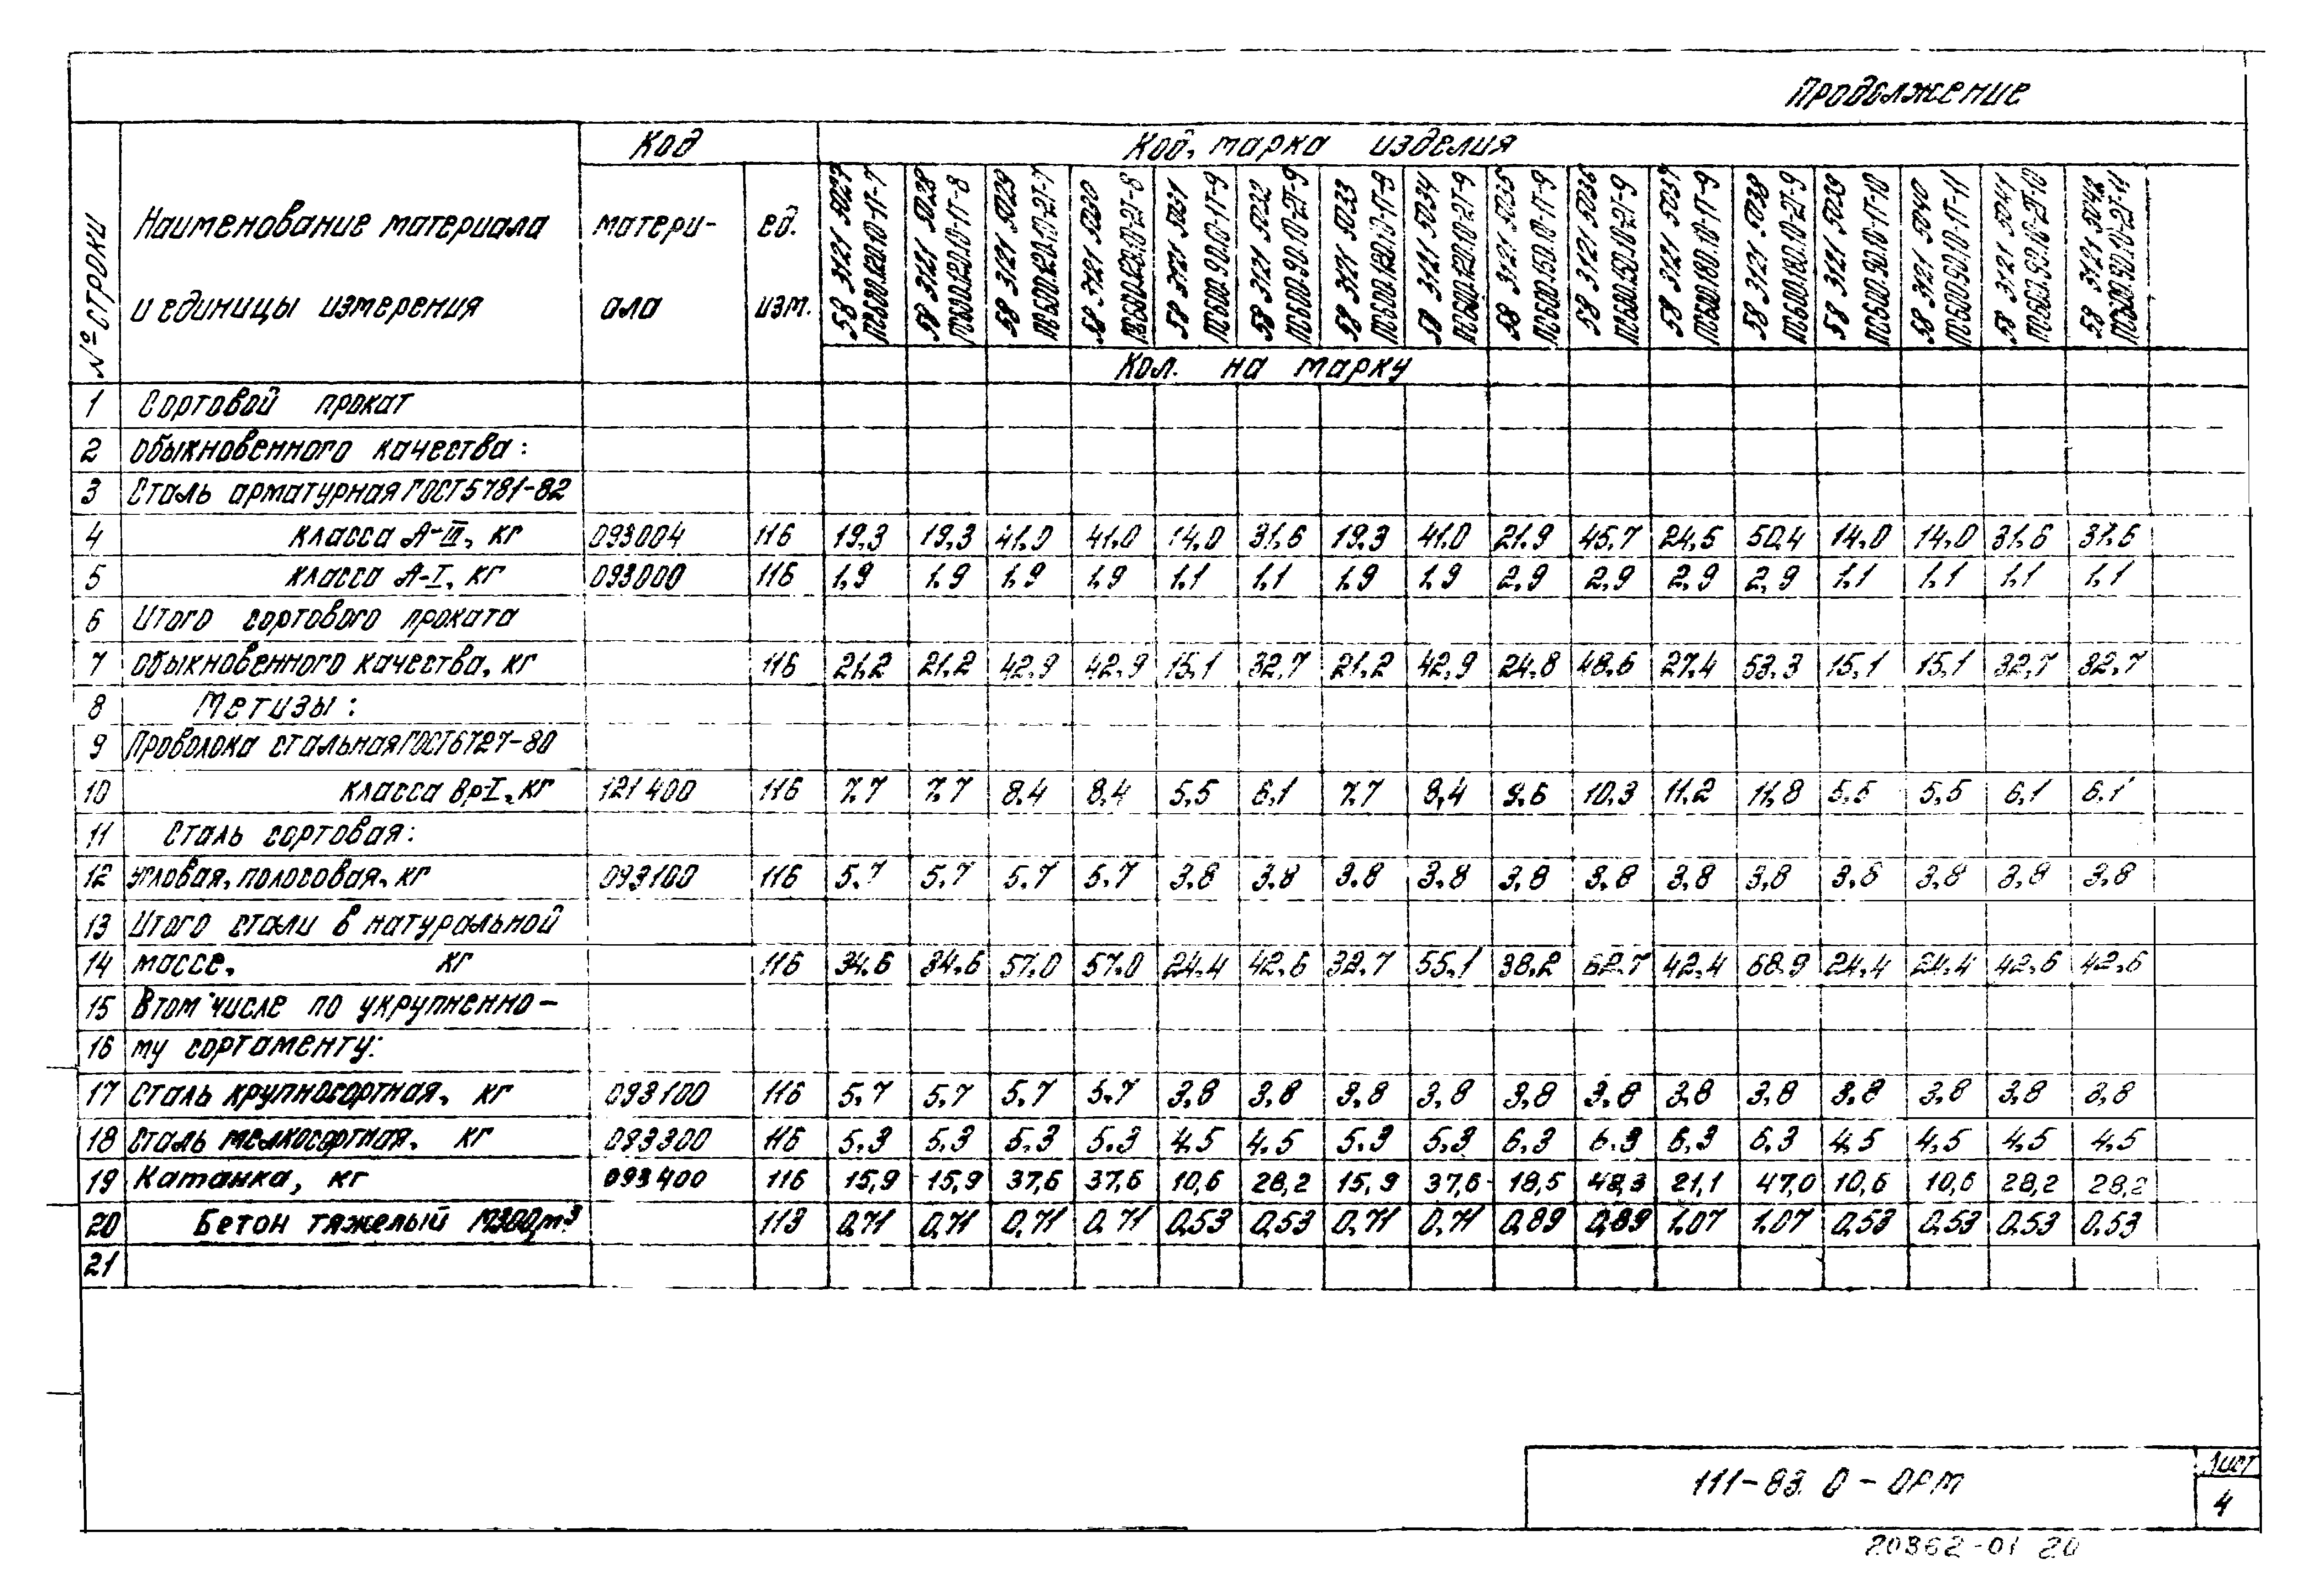 Продолжение
№ строки
Наименование материала
и единицы измерения
Код
матери-
ала
ед.
изм.
Код, марка изделия
58 3121 5027
58 3121 5028
58 3121 5029
58 3121 5030
58 3121 5031
58 3121 5032
58 3121 5033
58 3121 5034
58 3121 5035
58 3121 5036
58 3121 5037
58 3121 5038
58 3121 5039
58 3121 5040
58 3121 5041
58 3121 5042
Кол. на марку
1 Сортовой прокат
2 обыкновенного качества:
3 Сталь арматурная ГОСТ 5781-82
4 класса А-III, кг 093004 116 19,3 19,3 41,0 41,0 14,0 31,6 19,3 41,0 21,9 45,7 24,5 50,4 14,0 14,0 31,6 31,6
5 класса А-I, кг 093000 116 1,9 1,9 1,9 1,9 1,1 1,1 1,9 1,9 2,9 2,9 2,9 2,9 1,1 1,1 1,1 1,1
6 Итого сортового проката
7 обыкновенного качества, кг 116 21,2 21,2 42,9 42,9 15,1 32,7 21,2 42,9 24,8 48,6 27,4 53,3 15,1 15,1 32,7 32,7
8 Метизы:
9 Проволока стальная ГОСТ 6727-80
10 класса Вр-I, кг 121400 116 7,7 7,7 8,4 8,4 5,5 6,1 7,7 8,4 9,6 10,3 11,2 11,8 5,5 5,5 6,1 6,1
11 Сталь сортовая:
12 угловая, полосовая, кг 093100 116 5,7 5,7 5,7 5,7 3,8 3,8 3,8 3,8 3,8 3,8 3,8 3,8 3,8 3,8 3,8 3,8
13 Итого стали в натуральной
14 массе, кг 116 34,6 34,6 57,0 57,0 24,4 42,6 32,7 55,1 38,2 62,7 42,4 68,9 24,4 24,4 42,6 42,6
15 В том числе по укрупненно-
16 му сортаменту:
17 Сталь крупносортная, кг 093100 116 5,7 5,7 5,7 5,7 3,8 3,8 3,8 3,8 3,8 3,8 3,8 3,8 3,8 3,8 3,8 3,8
18 Сталь мелкосортная, кг 093300 116 5,3 5,3 5,3 5,3 4,5 4,5 5,3 5,3 6,3 6,3 6,3 6,3 4,5 4,5 4,5 4,5
19 Катанка, кг 093400 116 15,9 15,9 37,6 37,6 10,6 28,2 15,9 37,6 18,5 42,3 21,1 47,0 10,6 10,6 28,2 28,2
20 Бетон тяжелый М300, м³ 113 0,71 0,71 0,71 0,71 0,53 0,53 0,71 0,71 0,89 0,89 1,07 1,07 0,53 0,53 0,53 0,53
21
111-83.0-ОРМ
Лист
4
20362-01 20